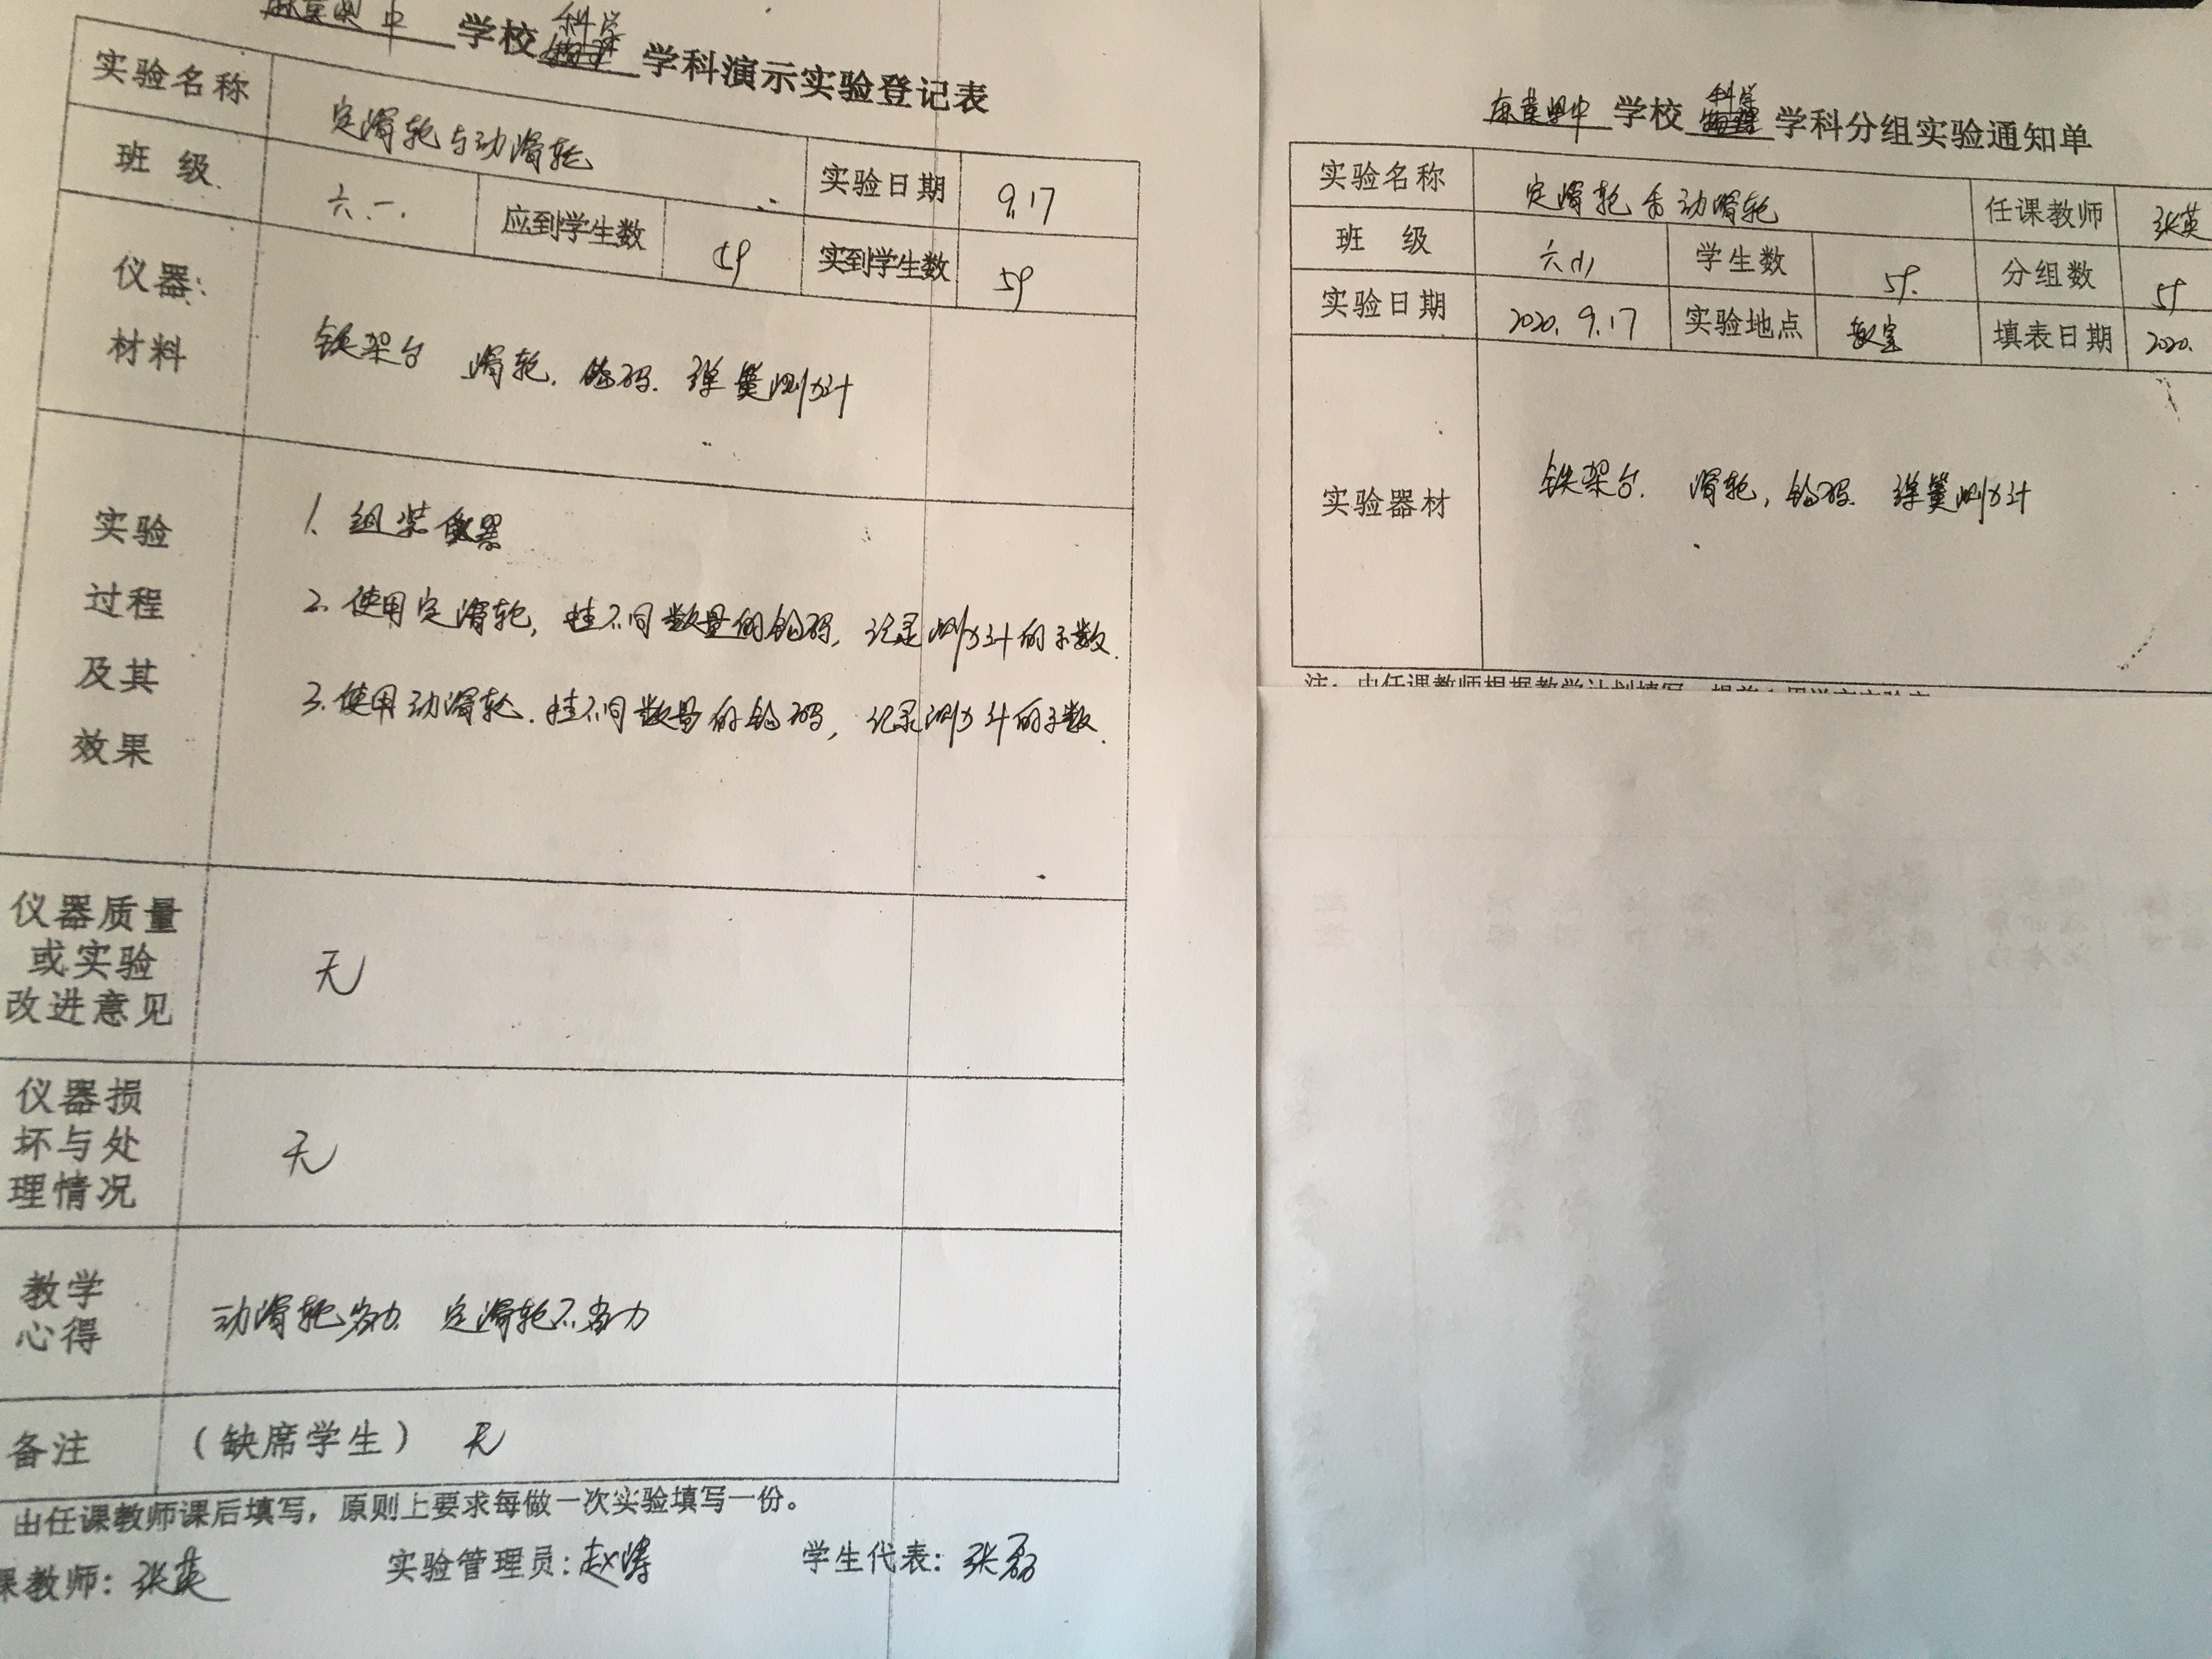 学校 科学 学科演示实验登记表
实验名称 定滑轮与动滑轮 实验日期 9.17
班 级 六.一. 应到学生数 59 实到学生数 59
仪器:
材料
铁架台 滑轮. 钩码. 弹簧测力计
实验
过程
及其
效果
1. 组装仪器
2. 使用定滑轮, 挂不同数量的钩码, 记录测力计的示数.
3. 使用动滑轮. 挂不同数量的钩码, 记录测力计的示数.
仪器质量
或实验
改进意见
无
仪器损
坏与处
理情况
无
教学
心得
动滑轮省力. 定滑轮不省力
备注 (缺席学生) 无
由任课教师课后填写，原则上要求每做一次实验填写一份。
课教师: 张英 实验管理员: 赵涛 学生代表: 张磊
学校 科学 学科分组实验通知单
实验名称 定滑轮和动滑轮 任课教师 张英
班 级 六(1) 学生数 59. 分组数
实验日期 2020. 9.17 实验地点 教室 填表日期 2020.
实验器材 铁架台. 滑轮, 钩码. 弹簧测力计